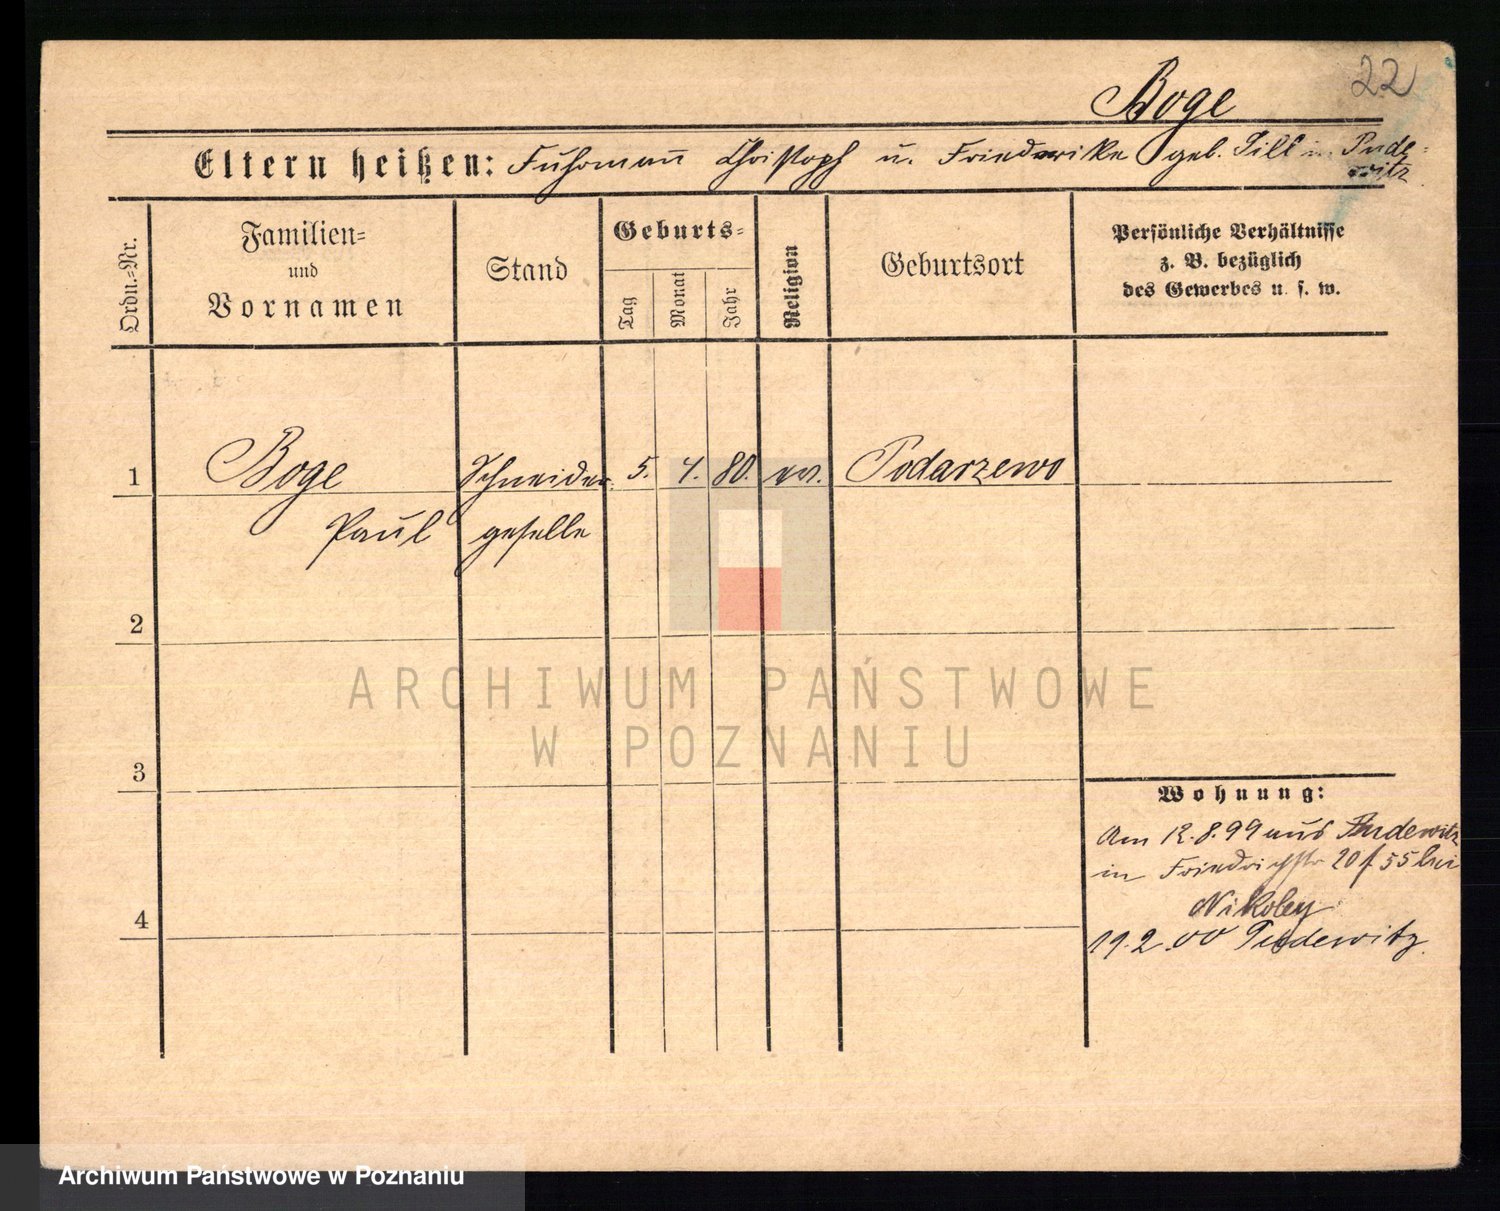 22
Boge
Eltern heißen: Fuhrmann Christoph u. Friederike geb. Till in Pude-
witz
Ordn.-Nr.
Familien-
und
Vornamen
Stand
Geburts-
Tag
Monat
Jahr
Religion
Geburtsort
Persönliche Verhältnisse
z. B. bezüglich
des Gewerbes u. s. w.
1 Boge Schneider 5. 4. 80. ev. Podarzewo
Paul geselle
2
3
4
Wohnung:
Am 12.8.99 aus Pudewitz
in Friedrichstr 20 f 55 bei
Nikoley
19.2.00 Pudewitz.
ARCHIWUM PAŃSTWOWE
W POZNANIU
Archiwum Państwowe w Poznaniu